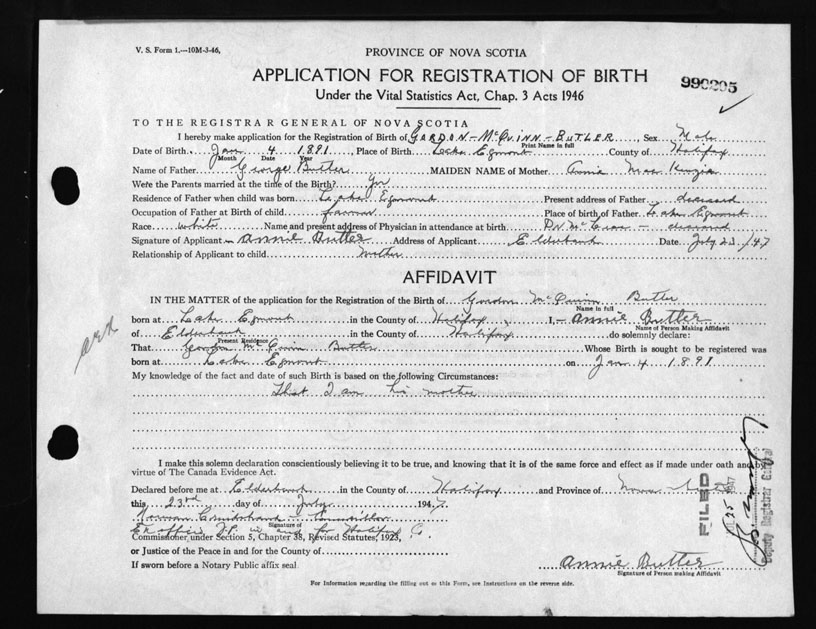 V. S. Form 1.—10M-3-46,
PROVINCE OF NOVA SCOTIA
APPLICATION FOR REGISTRATION OF BIRTH
Under the Vital Statistics Act, Chap. 3 Acts 1946
990205
TO THE REGISTRAR GENERAL OF NOVA SCOTIA
I hereby make application for the Registration of Birth of GORDON - McQUINN - BUTLER, Sex Male
Print Name in full
Date of Birth Jan 4 1891, Place of Birth Lake Egmont County of Halifax
Month Date Year
Name of Father George Butler MAIDEN NAME of Mother Annie Mac Kenzie
Were the Parents married at the time of the Birth? Yes
Residence of Father when child was born Lake Egmont Present address of Father deceased
Occupation of Father at Birth of child farmer Place of birth of Father Lake Egmont
Race white Name and present address of Physician in attendance at birth Dr. - deceased
Signature of Applicant Annie Butler Address of Applicant Elderbank Date July 23 /47
Relationship of Applicant to child mother
AFFIDAVIT
IN THE MATTER of the application for the Registration of the Birth of Gordon McQuinn Butler
Name in full
born at Lake Egmont in the County of Halifax, I, Annie Butler
Name of Person Making Affidavit
of Elderbank in the County of Halifax do solemnly declare:
Present Residence
That Gordon McQuinn Butler Whose Birth is sought to be registered was
born at Lake Egmont on Jan 4 1891
My knowledge of the fact and date of such Birth is based on the following Circumstances:
That I am his mother
I make this solemn declaration conscientiously believing it to be true, and knowing that it is of the same force and effect as if made under oath and by
virtue of The Canada Evidence Act.
Declared before me at Elderbank in the County of Halifax and Province of Nova Scotia
this 23rd day of July 1947
Norman Councillor
Signature of
Ex officio J.P. in and for Halifax Co.
Commissioner under Section 5, Chapter 38, Revised Statutes, 1923,
or Justice of the Peace in and for the County of
If sworn before a Notary Public affix seal
Annie Butler
Signature of Person making Affidavit
For Information regarding the filling out of this Form, see Instructions on the reverse side.
FILED
Deputy Registrar General